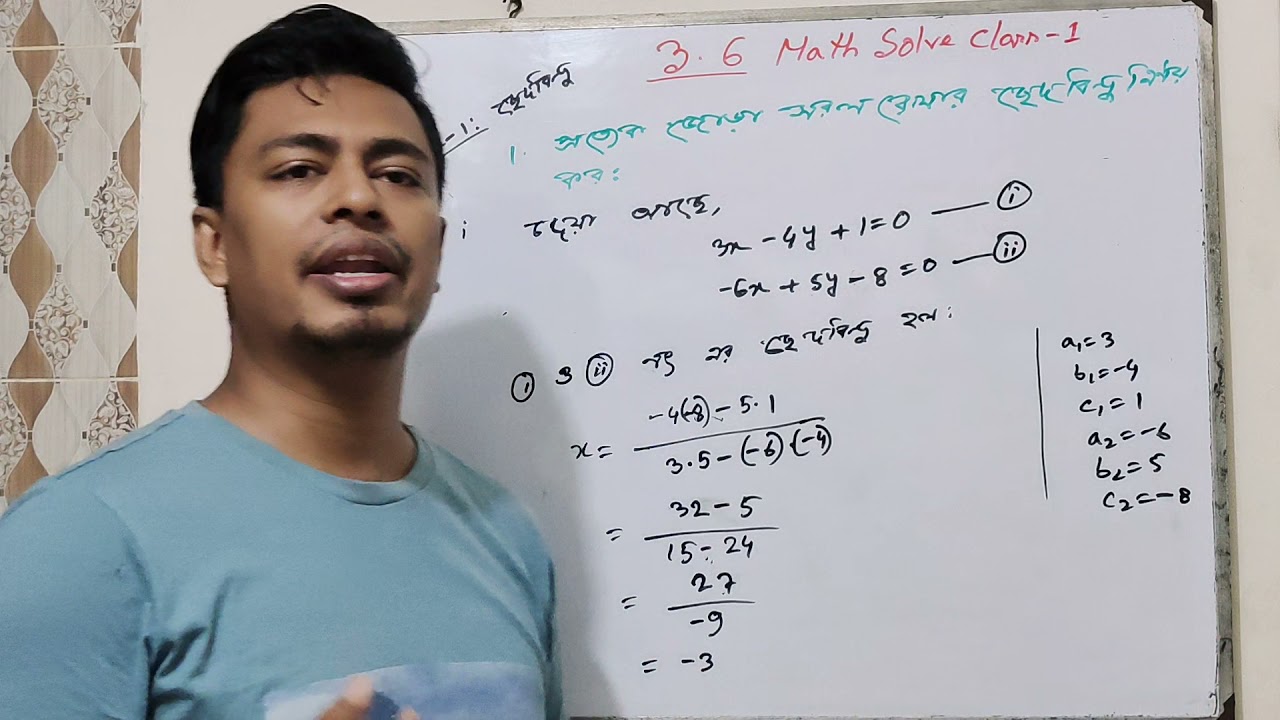 3.6 Math Solve Class-1
-1: ছেদবিন্দু
1. প্রত্যেক জোড়া সরলরেখার ছেদবিন্দু নির্ণয়
কর:
i দেয়া আছে,
3x - 4y + 1 = 0 — (i)
-6x + 5y - 8 = 0 — (ii)
(i) ও (ii) নং এর ছেদবিন্দু হল:
x = \frac{-4(-8) - 5·1}{3·5 - (-6)·(-4)}
= \frac{32 - 5}{15 - 24}
= \frac{27}{-9}
= -3
a₁ = 3
b₁ = -4
c₁ = 1
a₂ = -6
b₂ = 5
c₂ = -8